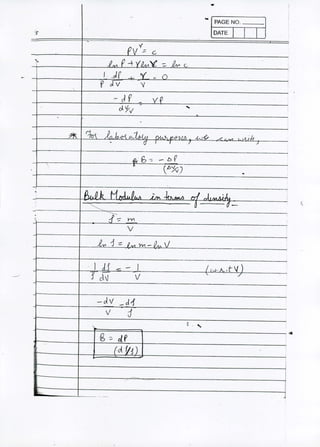 PAGE NO.
DATE
PV^γ = c
ln P + γ ln V = ln c
1/P dP/dV + γ/V = 0
- dP / dV/V = γP
* For laboratory purposes, we can write,
B = - ΔP / (ΔV/V)
Bulk Modulus in terms of density
ρ = m/V
ln ρ = ln m - ln V
1/ρ dρ/dV = - 1/V (w.r.t V)
-dV/V = dρ/ρ
B = dP / (dρ/ρ)